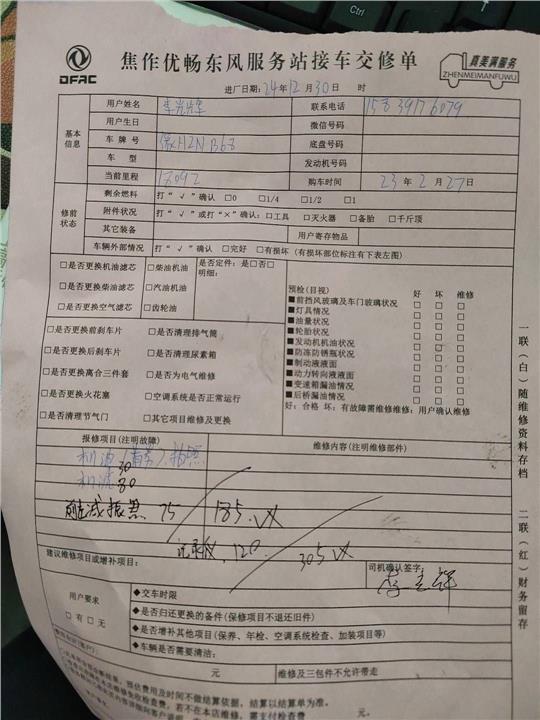 DFAC
焦作优畅东风服务站接车交修单
真美满服务
ZHENMEIMANFUWU
进厂日期：24年12月30日 时
基本信息
用户姓名 联系电话
用户生日 微信号码
车牌号 H2NB68 底盘号码
车型 发动机号码
当前里程 17092 购车时间 23年2月27日
修前状态
剩余燃料 打“√”确认 □0 □1/4 □1/2 □1
附件状况 打“√”或打“×”确认：□工具 □灭火器 □备胎 □千斤顶
其它装备 用户寄存物品
车辆外部情况 打“√”确认 □完好 □有损坏（有损坏部位标注有下表左图）
□是否更换机油滤芯 □柴油机油 是否定件：是□否□
明细：
□是否更换柴油滤芯 □汽油机油
□是否更换空气滤芯 □齿轮油
□是否更换前刹车片 □是否清理排气筒
□是否更换后刹车片 □是否清理尿素箱
□是否更换离合三件套 □是否为电气维修
□是否更换火花塞 □空调系统是否正常运行
□是否清理节气门 □其它项目维修及更换
预检（目视） 好 坏 维修
■前挡风玻璃及车门玻璃状况 □ □ □
■灯具情况 □ □ □
■油量状况 □ □ □
■轮胎状况 □ □ □
■发动机机油状况 □ □ □
■防冻防锈瓶状况 □ □ □
■制动液液面 □ □ □
■动力转向液液面 □ □ □
■变速箱漏油情况 □ □ □
■后桥漏油情况 □ □ □
好：合格 坏：有故障需维修维修：用户确认维修
报修项目（注明故障） 维修内容（注明维修部件）
机油
30
机滤 80
75 185.
120 305
建议维修项目或增补项目： 司机确认签字：
用户要求
□有 □无
◆交车时限
◆是否归还更换的备件（保修项目不退还旧件）
◆是否增补其他项目（保养、年检、空调系统检查、加装项目等）
◆车辆是否需要清洁：
元 维修及三包件不允许带走
预估费用及时间不做结算依据，结算以结算单为准。
若不在本店维修，需支付检查费 元。
一联（白）随维修资料存档
二联（红）财务留存